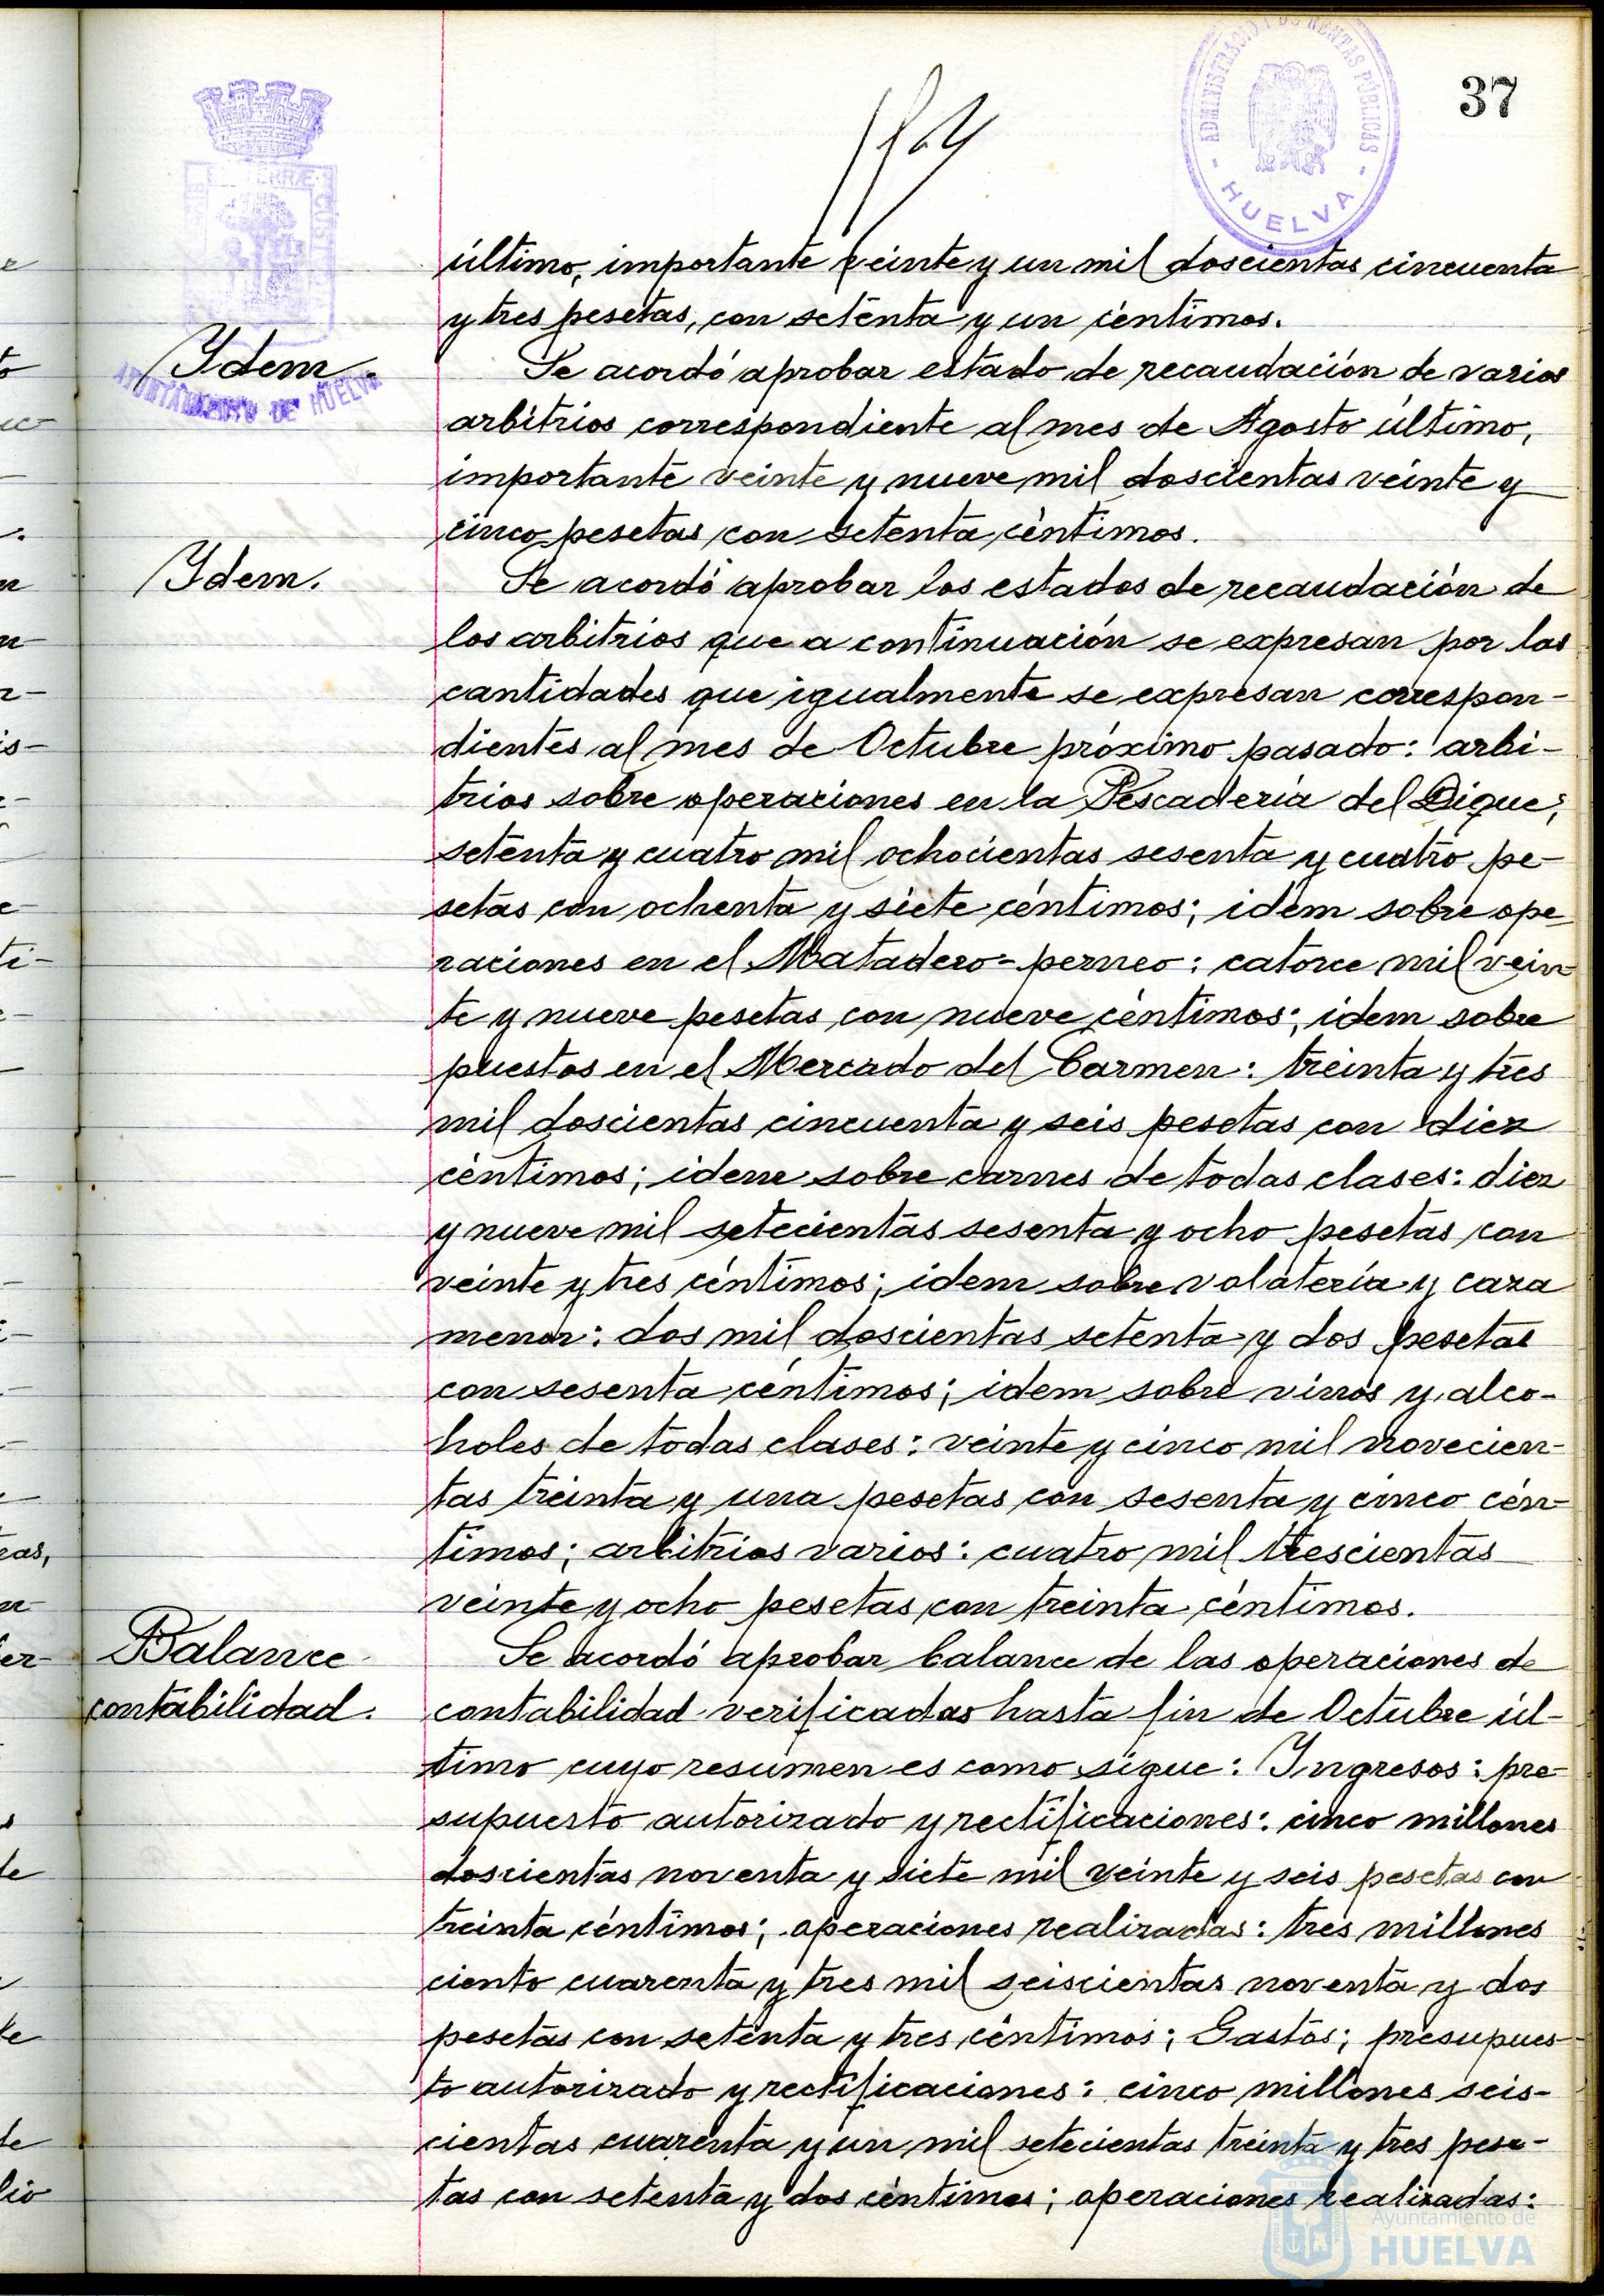 37
ADMINISTRACIÓN DE RENTAS PÚBLICAS
- HUELVA -
último, importante veinte y un mil doscientas cincuenta
y tres pesetas, con setenta y un céntimos.
Ydem.
AYUNTAMIENTO DE HUELVA
Se acordó aprobar estado de recaudación de varios
arbitrios correspondiente al mes de Agosto último,
importante veinte y nueve mil doscientas veinte y
cinco pesetas con setenta céntimos.
Ydem.
Se acordó aprobar los estados de recaudación de
los arbitrios que a continuación se expresan por las
cantidades que igualmente se expresan correspon-
dientes al mes de Octubre próximo pasado: arbi-
trios sobre operaciones en la Pescadería del Dique;
setenta y cuatro mil ochocientas sesenta y cuatro pe-
setas con ochenta y siete céntimos; idem sobre ope-
raciones en el Matadero-perneo: catorce mil vein-
te y nueve pesetas con nueve céntimos; idem sobre
puestos en el Mercado del Carmen: treinta y tres
mil doscientas cincuenta y seis pesetas con diez
céntimos; idem sobre carnes de todas clases: diez
y nueve mil setecientas sesenta y ocho pesetas con
veinte y tres céntimos; idem sobre volatería y caza
menor: dos mil doscientas setenta y dos pesetas
con sesenta céntimos; idem sobre vinos y alco-
holes de todas clases: veinte y cinco mil novecien-
tas treinta y una pesetas con sesenta y cinco cén-
timos; arbitrios varios: cuatro mil trescientas
veinte y ocho pesetas con treinta céntimos.
Balance
contabilidad.
Se acordó aprobar balance de las operaciones de
contabilidad verificadas hasta fin de Octubre úl-
timo cuyo resumen es como sigue: Ingresos: pre-
supuesto autorizado y rectificaciones: cinco millones
doscientas noventa y siete mil veinte y seis pesetas con
treinta céntimos; operaciones realizadas: tres millones
ciento cuarenta y tres mil seiscientas noventa y dos
pesetas con setenta y tres céntimos; Gastos; presupues-
to autorizado y rectificaciones: cinco millones seis-
cientas cuarenta y un mil setecientas treinta y tres pese-
tas con setenta y dos céntimos; operaciones realizadas:
Ayuntamiento de
HUELVA